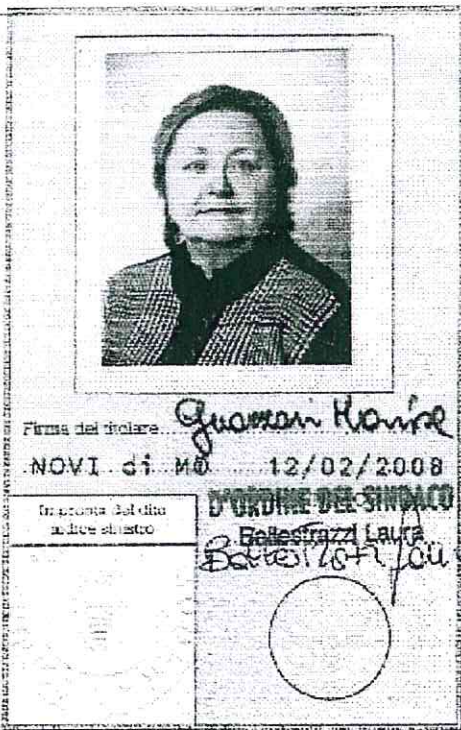 Firma del titolare Guazzoni Marise
NOVI di MO 12/02/2008
Impronta del dito
indice sinistro
D'ORDINE DEL SINDACO
Bellestrazzi Laura